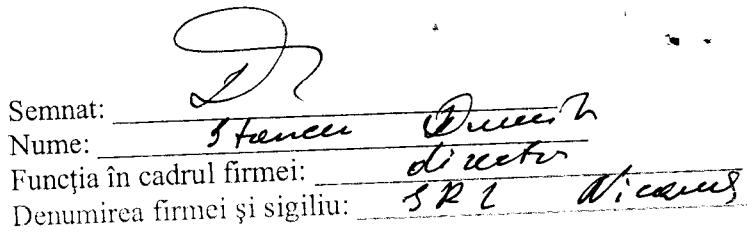 Semnat:
Nume: Stancu
Funcția în cadrul firmei: director
Denumirea firmei și sigiliu: SRL